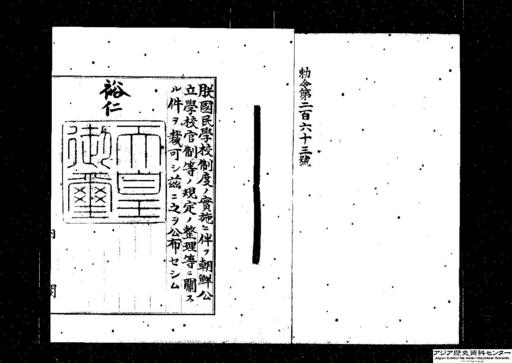 勅令第二百六十三號
朕國民學校制度ノ實施ニ伴フ朝鮮公
立學校官制等ノ規定ノ整理等ニ關ス
ル件ヲ裁可シ茲ニ之ヲ公布セシム
裕仁
天皇
御璽
内閣
アジア歴史資料センター
Japan Center for Asian Historical Records